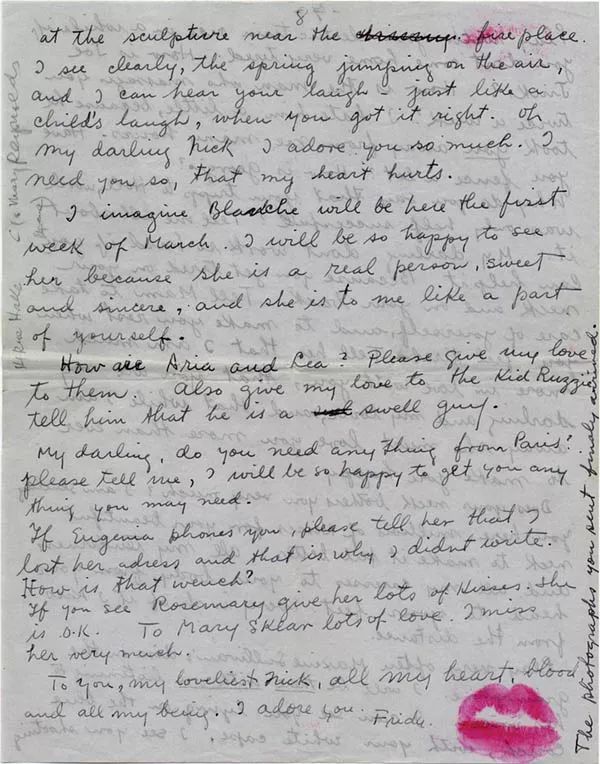 8
at the sculpture near the fire place.
I see clearly, the spring jumping on the air,
and I can hear your laugh – just like a
child's laugh, when you got it right. Oh
my darling Nick I adore you so much. I
need you so, that my heart hurts.
I imagine Blanche will be here the first
week of March. I will be so happy to see
her because she is a real person, sweet
and sincere, and she is to me like a part
of yourself.
How are Aria and Lea? Please give my love
to them. Also give my love to the Kid Ruzzie
tell him that he is a swell guy.
My darling, do you need any thing from Paris?
please tell me, I will be so happy to get you any
thing you may need.
If Eugenia phones you, please tell her that I
lost her adress and that is why I didnt write.
How is that wench?
If you see Rosemary give her lots of Kisses. She
is O.K. To Mary Sklar lots of love. I miss
her very much.
To you, my loveliest Nick, all my heart, blood
and all my being. I adore you. Frida.
The photographs you sent finaly arrived.